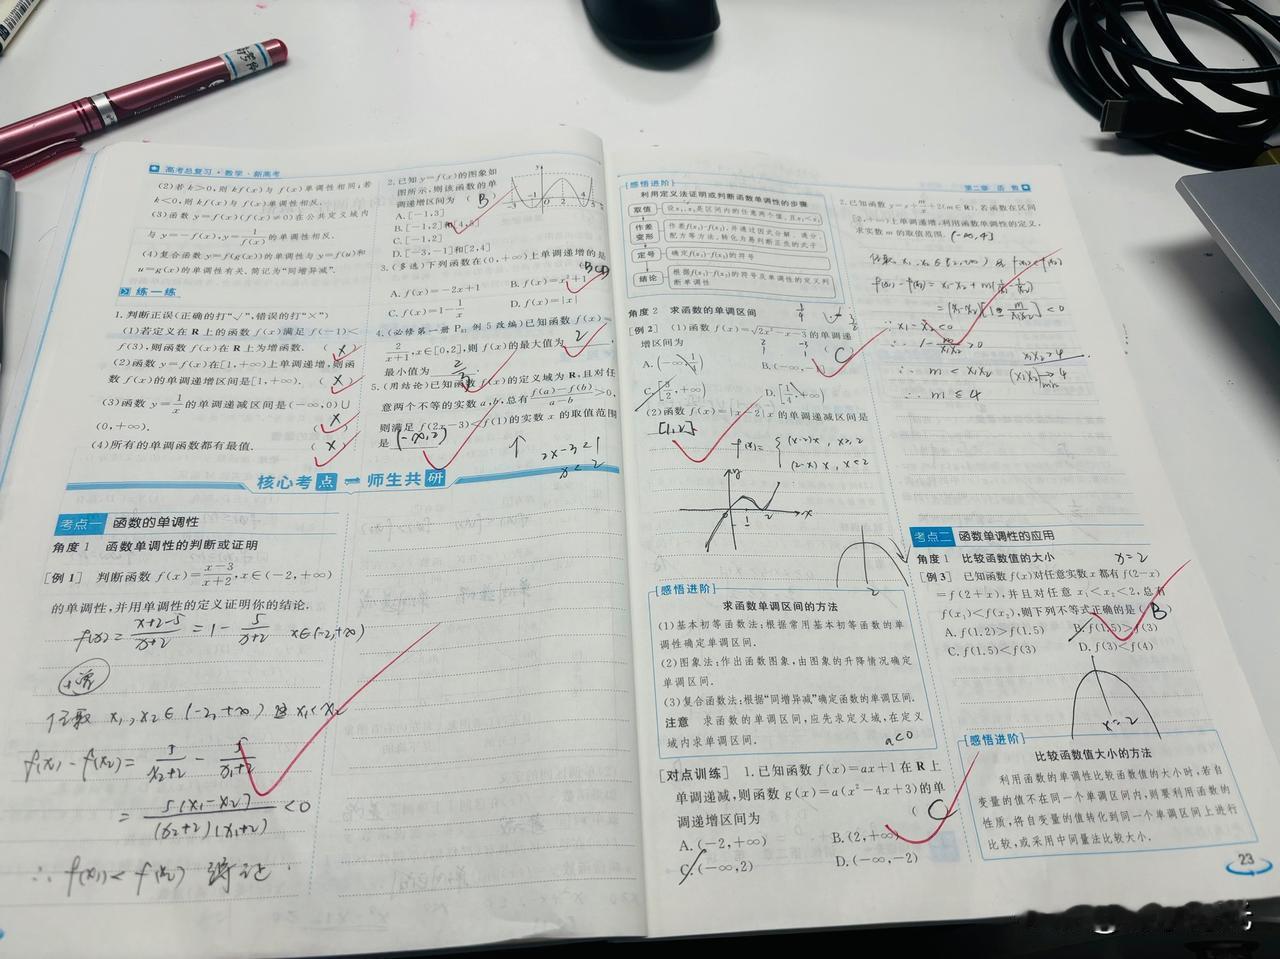 高考总复习·数学·新高考
(2)若k>0,则kf(x)与f(x)单调性相同;若
k<0,则kf(x)与f(x)单调性相反.
(3)函数y=f(x)(f(x)≠0)在公共定义域内
与y=-f(x),y=1/f(x)的单调性相反.
(4)复合函数y=f(g(x))的单调性与y=f(u)和
u=g(x)的单调性有关,简记为"同增异减".
练一练
1.判断正误(正确的打"√",错误的打"×")
(1)若定义在R上的函数f(x)满足f(-1)<
f(3),则函数f(x)在R上为增函数. (×)
(2)函数y=f(x)在[1,+∞)上单调递增,则函
数f(x)的单调递增区间是[1,+∞). (×)
(3)函数y=1/x的单调递减区间是(-∞,0)∪
(0,+∞). (×)
(4)所有的单调函数都有最值. (×)
2.已知y=f(x)的图象如
图所示,则该函数的单
调递增区间为 (B)
A.[-1,3]
B.[-1,2]和[4,5]
C.[-1,2]
D.[-3,-1]和[2,4]
3.(多选)下列函数在(0,+∞)上单调递增的是
(BCD)
A.f(x)=-2x+1 B.f(x)=x²+1
C.f(x)=1-1/x D.f(x)=|x|
4.(必修第一册P81例5改编)已知函数f(x)=
2/(x+1),x∈[0,2],则f(x)的最大值为 2 ,
最小值为 2/3 .
5.(用结论)已知函数f(x)的定义域为R,且对任
意两个不等的实数a,b,总有(f(a)-f(b))/(a-b)>0,
则满足f(2x-3)<f(1)的实数x的取值范围
是 (-∞,2)
↑ 2x-3<1
x<2
核心考点 师生共研
考点一 函数的单调性
角度1 函数单调性的判断或证明
[例1] 判断函数f(x)=(x-3)/(x+2),x∈(-2,+∞)
的单调性,并用单调性的定义证明你的结论.
f(x)=(x+2-5)/(x+2)=1-5/(x+2) x∈(-2,+∞)
任取 x1,x2∈(-2,+∞) 且 x1<x2
f(x1)-f(x2)=5/(x2+2)-5/(x1+2)
=5(x1-x2)/((x2+2)(x1+2))<0
∴ f(x1)<f(x2) 得证.
[感悟进阶]
利用定义法证明或判断函数单调性的步骤
取值 设x1,x2是区间内的任意两个值,且x1<x2
作差变形 作差f(x1)-f(x2),并通过因式分解、通分、
配方等方法,转化为易判断正负的式子
定号 确定f(x1)-f(x2)的符号
结论 根据f(x1)-f(x2)的符号及单调性的定义判
断单调性
角度2 求函数的单调区间
[例2] (1)函数f(x)=√(2x²-x-3)的单调递
增区间为 (C)
A.(-∞,1/4] B.(-∞,-1]
C.[3/2,+∞) D.[1/4,+∞)
(2)函数f(x)=|x-2|x的单调递减区间是
[1,2]
f(x)={(x-2)x, x≥2
(2-x)x, x<2
y
x
1 2
[感悟进阶]
求函数单调区间的方法
(1)基本初等函数法:根据常用基本初等函数的单
调性确定单调区间.
(2)图象法:作出函数图象,由图象的升降情况确定
单调区间.
(3)复合函数法:根据"同增异减"确定函数的单调区间.
注意 求函数的单调区间,应先求定义域,在定义
域内求单调区间.
a<0
[对点训练] 1.已知函数f(x)=ax+1在R上
单调递减,则函数g(x)=a(x²-4x+3)的单
调递增区间为 (C)
A.(-2,+∞) B.(2,+∞)
C.(-∞,2) D.(-∞,-2)
2
第二章 函数
2.已知函数y=x+m/x+2(m∈R),若函数在区间
[2,+∞)上单调递增,利用函数单调性的定义,
求实数m的取值范围. (-∞,4]
任取 x1,x2∈[2,+∞) 且
=(x1-x2)[1-m/(x1x2)]<0
∵ x1-x2<0
∴ 1-m/(x1x2)>0
x1x2>4
∴ m<x1x2
∴ m≤4
考点二 函数单调性的应用
角度1 比较函数值的大小
x=2
[例3] 已知函数f(x)对任意实数x都有f(2-x)
=f(2+x),并且对任意x1<x2<2,总有
f(x1)<f(x2),则下列不等式正确的是 (B)
A.f(1.2)>f(1.5) B.f(1.5)>f(3)
C.f(1.5)<f(3) D.f(3)<f(4)
x=2
[感悟进阶]
比较函数值大小的方法
利用函数的单调性比较函数值的大小时,若自
变量的值不在同一个单调区间内,则要利用函数的
性质,将自变量的值转化到同一个单调区间上进行
比较,或采用中间量法比较大小.
23